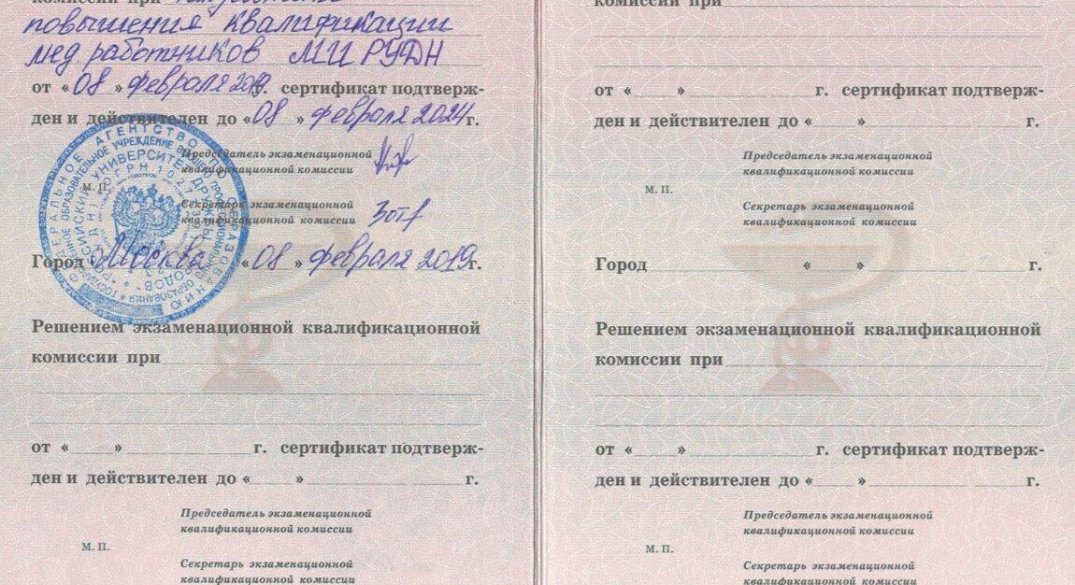 комиссии при
повышения квалификации
мед. работников МИ РУДН
от «08» февраля 2019г. сертификат подтверж-
ден и действителен до «08» февраля 2024г.
Председатель экзаменационной
квалификационной комиссии
М. П.
Секретарь экзаменационной
квалификационной комиссии
Город Москва «08» февраля 2019г.
Решением экзаменационной квалификационной
комиссии при
от « » г. сертификат подтверж-
ден и действителен до « » г.
Председатель экзаменационной
квалификационной комиссии
М. П.
Секретарь экзаменационной
квалификационной комиссии
комиссии при
от « » г. сертификат подтверж-
ден и действителен до « » г.
Председатель экзаменационной
квалификационной комиссии
М. П.
Секретарь экзаменационной
квалификационной комиссии
Город « » г.
Решением экзаменационной квалификационной
комиссии при
от « » г. сертификат подтверж-
ден и действителен до « » г.
Председатель экзаменационной
квалификационной комиссии
М. П.
Секретарь экзаменационной
квалификационной комиссии